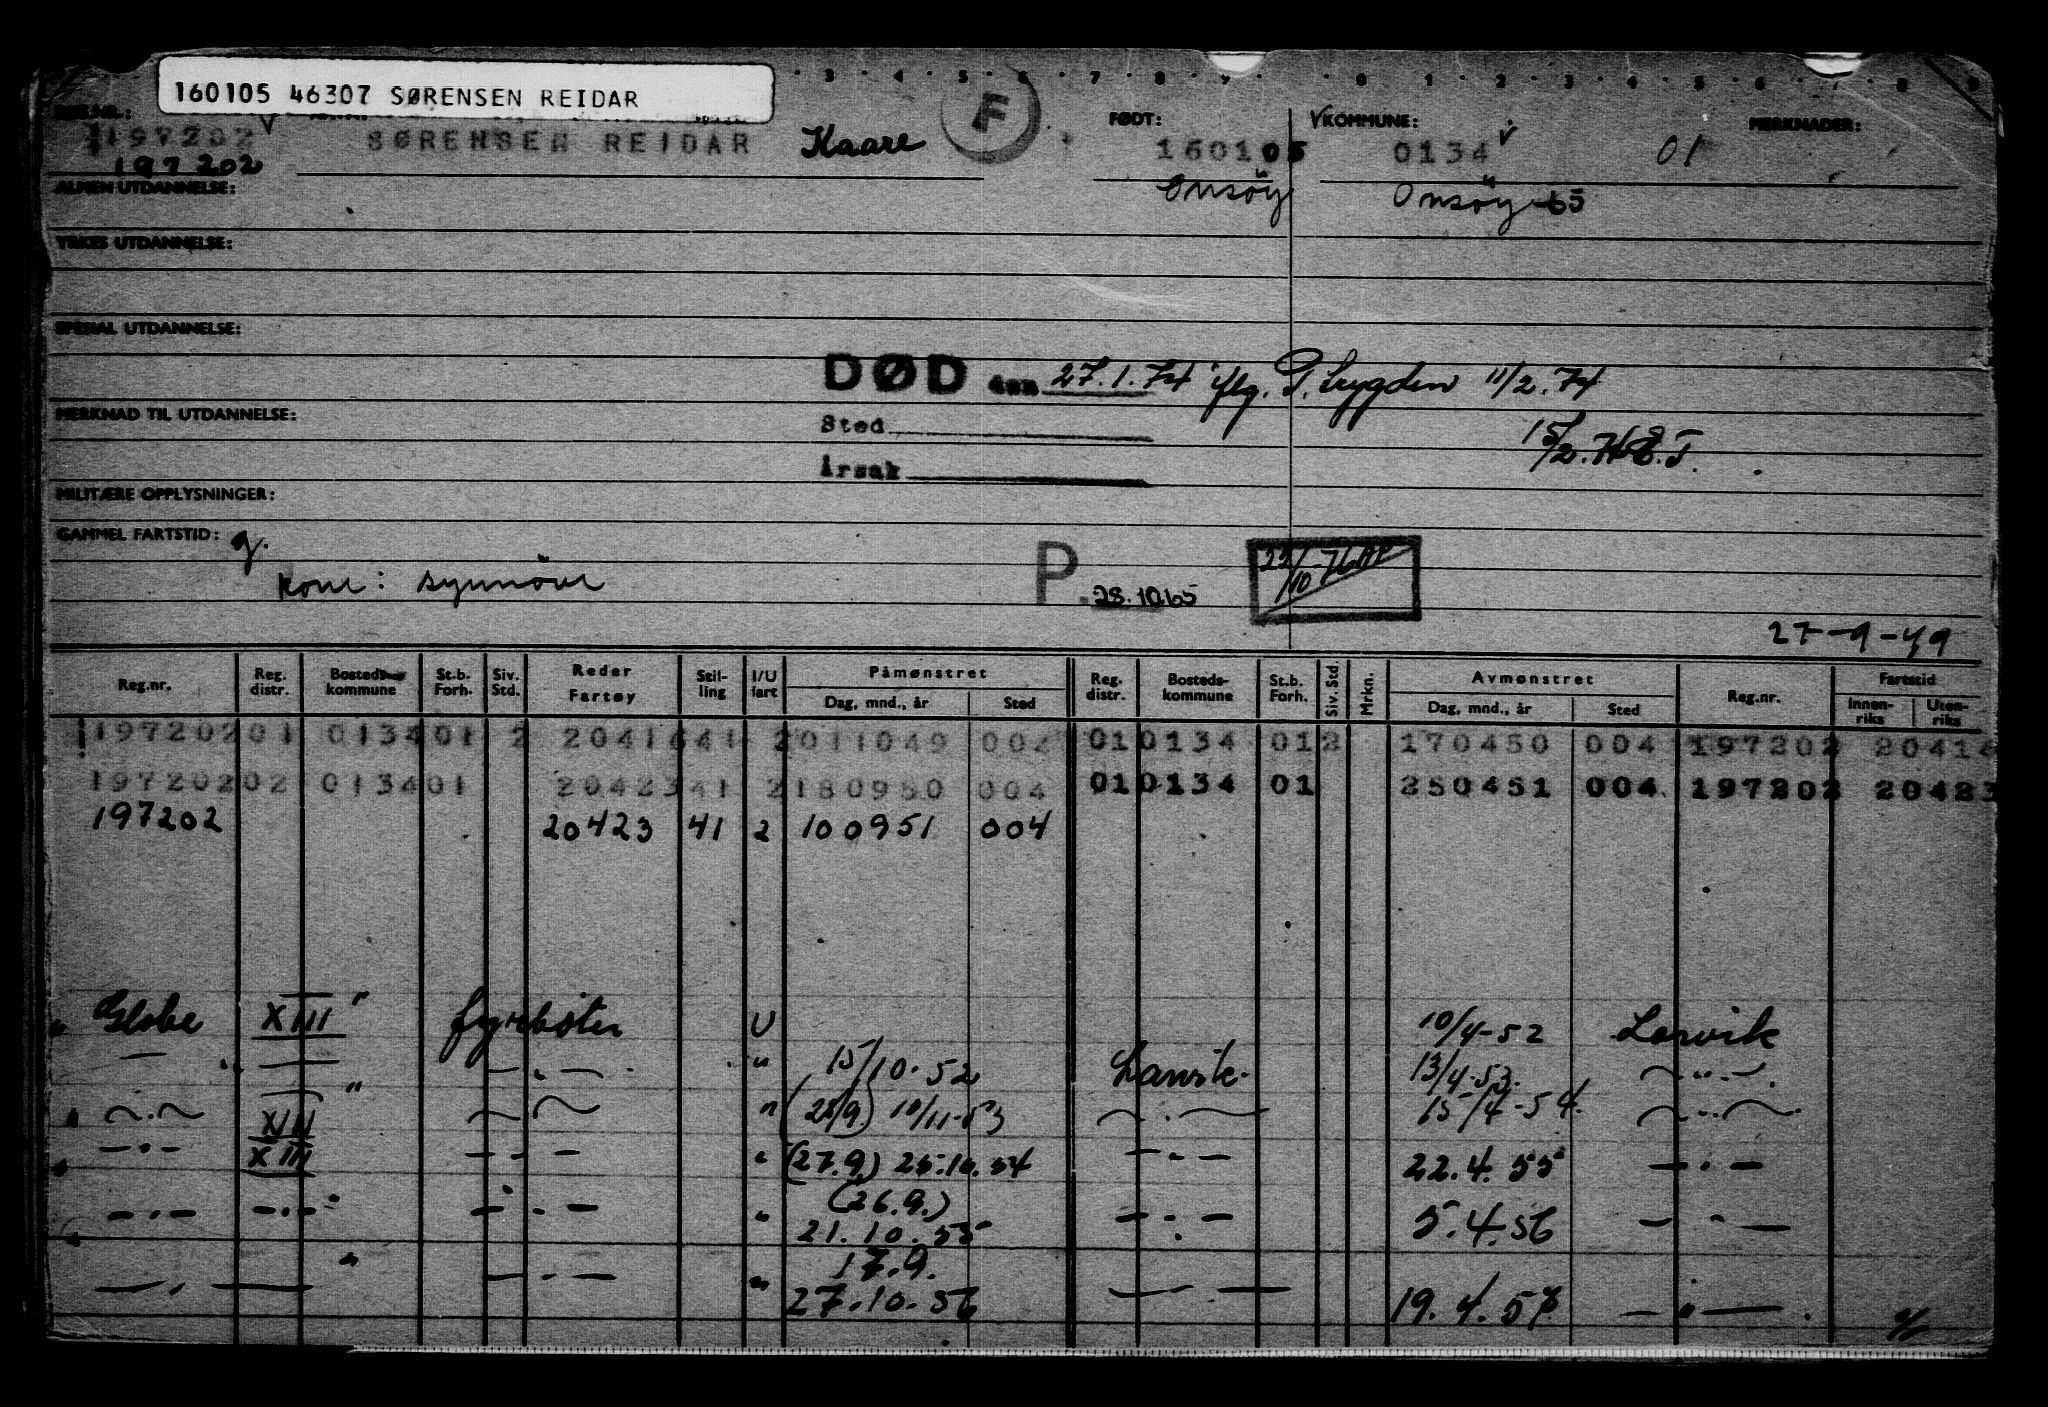 160105 46307 SØRENSEN REIDAR
3 4 5 6 7 8 9 0 1 2 3 4 5 6 7 8 9
F
FØDT: KOMMUNE: MERKNADER:
197202 SØRENSEN REIDAR Kaare 160105 0134 01
197202 Onsöy Onsöy -65
ALMEN UTDANNELSE:
YRKES UTDANNELSE:
SPESIAL UTDANNELSE:
DØD den 27.1.74 iflg. P. trygden 11/2.74
MERKNAD TIL UTDANNELSE:
Sted
15/2.74 E.T.
Årsak
MILITÆRE OPPLYSNINGER:
GAMMEL FARTSTID: g.
kone: synnöve
P. 28.10.65
22/10-76 AP
27-9-49
Reg.nr. Reg. distr. Bosteds kommune St.b. Forh. Siv. Std. Reder Fartøy Stilling I/U fart Påmønstret Dag, mnd., år Sted Reg. distr. Bosteds-kommune St.b. Forh. Siv. Std. Mrkn. Avmønstret Dag, mnd., år Sted Reg.nr. Fartstid Innenriks Utenriks
197202 01 0134 01 2 20416 41 2 011049 004 01 0134 01 2 170450 004 197202 20416
197202 02 0134 01 20423 41 2 180950 004 01 0134 01 250451 004 197202 20423
197202 20423 41 2 100951 004
" Globe XIII " fyrböter U 10/4-52 Larvik
— " — — " — " 15/10.52 Larvik. 13/4-53. — " —.
" — . — XIII " — " — " (28/9) 10/11-53 — . — 15/4-54. — " —.
— . — XIII — . — " (27.9) 25.10.54 — . — 22.4.55 — . —
— . — — . — " — . — " (26.9.) 21.10.55 — . — 5.4.56 — " —
— . — " — . — " 17.9. 27.10.56 — " — 19.4.57 — " —.